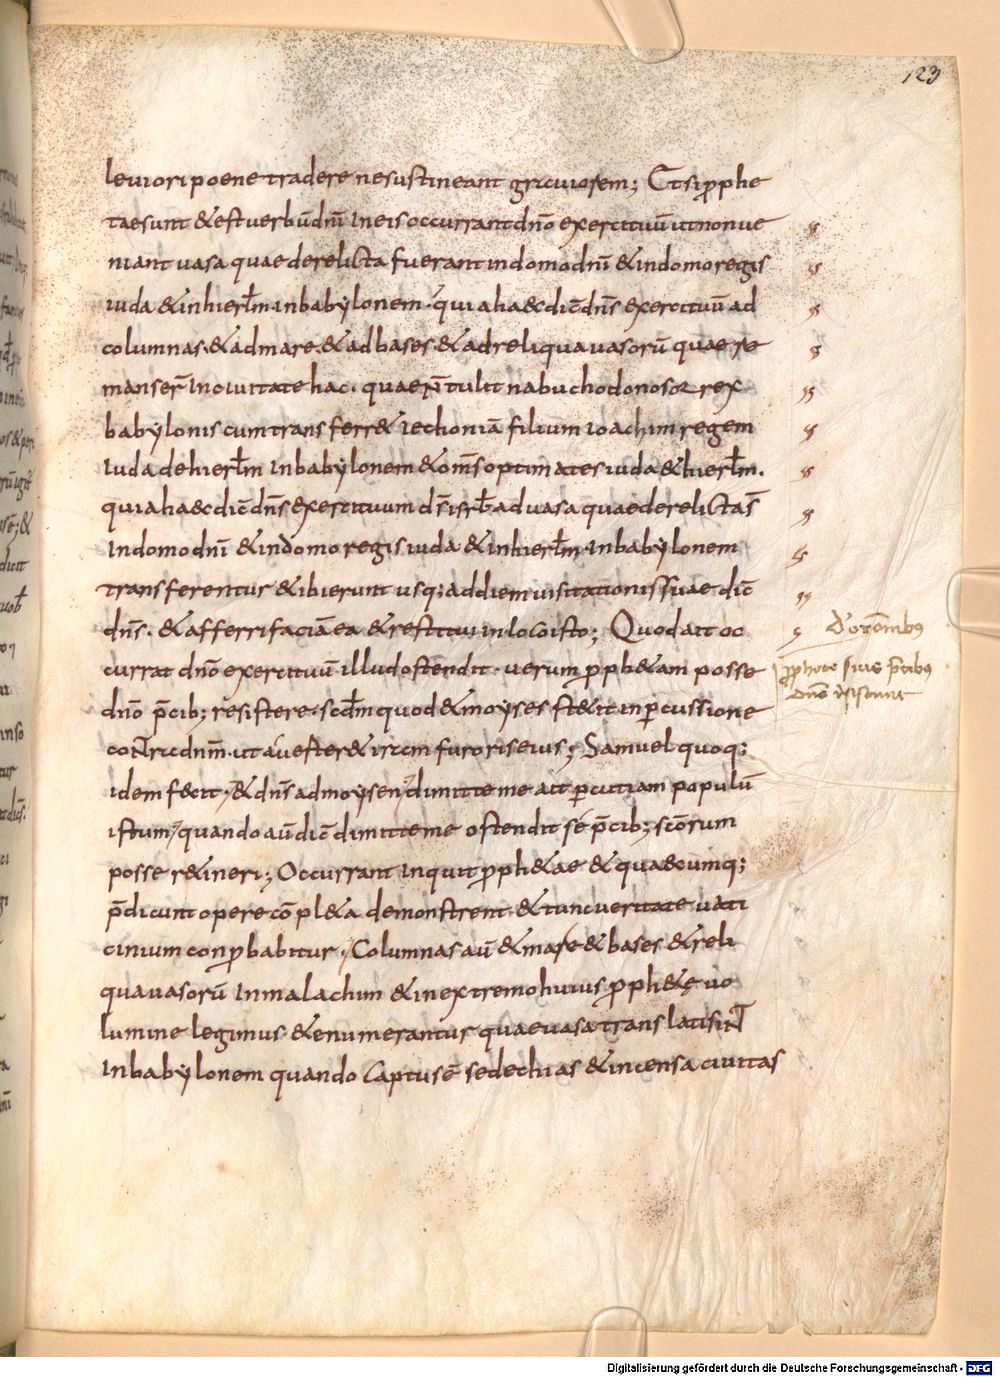 123
leuiori poene tradere ne sustineant grauiorem; Et si ꝓphe
tae sunt & est uerbū dnī in eis occurrant dnō exercituū ut non ue
niant uasa quae derelicta fuerant in domo dnī & in domo regis
iuda & in hierłm in babylonem· quia haec diē dns̄ exercituū ad
columnas & ad mare & ad bases & ad reliqua uasorū quae re
manser̄ in ciuitate hac· quae n̄ tulit nabuchodonosor rex
babylonis cum transferr& iechoniā filium ioachim regem
iuda de hierłm in babylonem & oms̄ optimates iuda & hierłm.
quia haec diē dns̄ exercituum ds̄ isrł ad uasa quae derelicta s̄
in domo dnī & in domo regis iuda & in hierłm in babylonem
transferentur & ibi erunt usq; ad diem uisitationis suae dic̄
dns̄· & afferri faciā ea & restitui in loco isto; Quod ait oc
currat dnō exercituū illud ostendit· uerum ꝓph&am posse
dnō p̄cib; resistere· scd̄m quod & moyses st&it in ꝑcussione
contra dnm̄ ut auerter& iram furoris eius; Samuel quoq;
idem fecit· & dns̄ ad moysen dimitte me ait ꝑcutiam populū
istum quando aū diē dimitte me ostendit se p̄cib; scōrum
posse r&ineri; Occurrant inquit ꝓph&ae & quaecumq;
p̄dicunt opere cōpl&a demonstrent & tunc ueritate uati
cinium conꝓbabitur· Columnas aū & mare & bases & reli
qua uasorū in malachim & in extremo huius ꝓph&ę uo
lumine legimus & enumerantur quae uasa translata sint
in babylonem quando captus ē sedechias & incensa ciuitas
ꝓphete suis p̄cibus
Digitalisierung gefördert durch die Deutsche Forschungsgemeinschaft - DFG